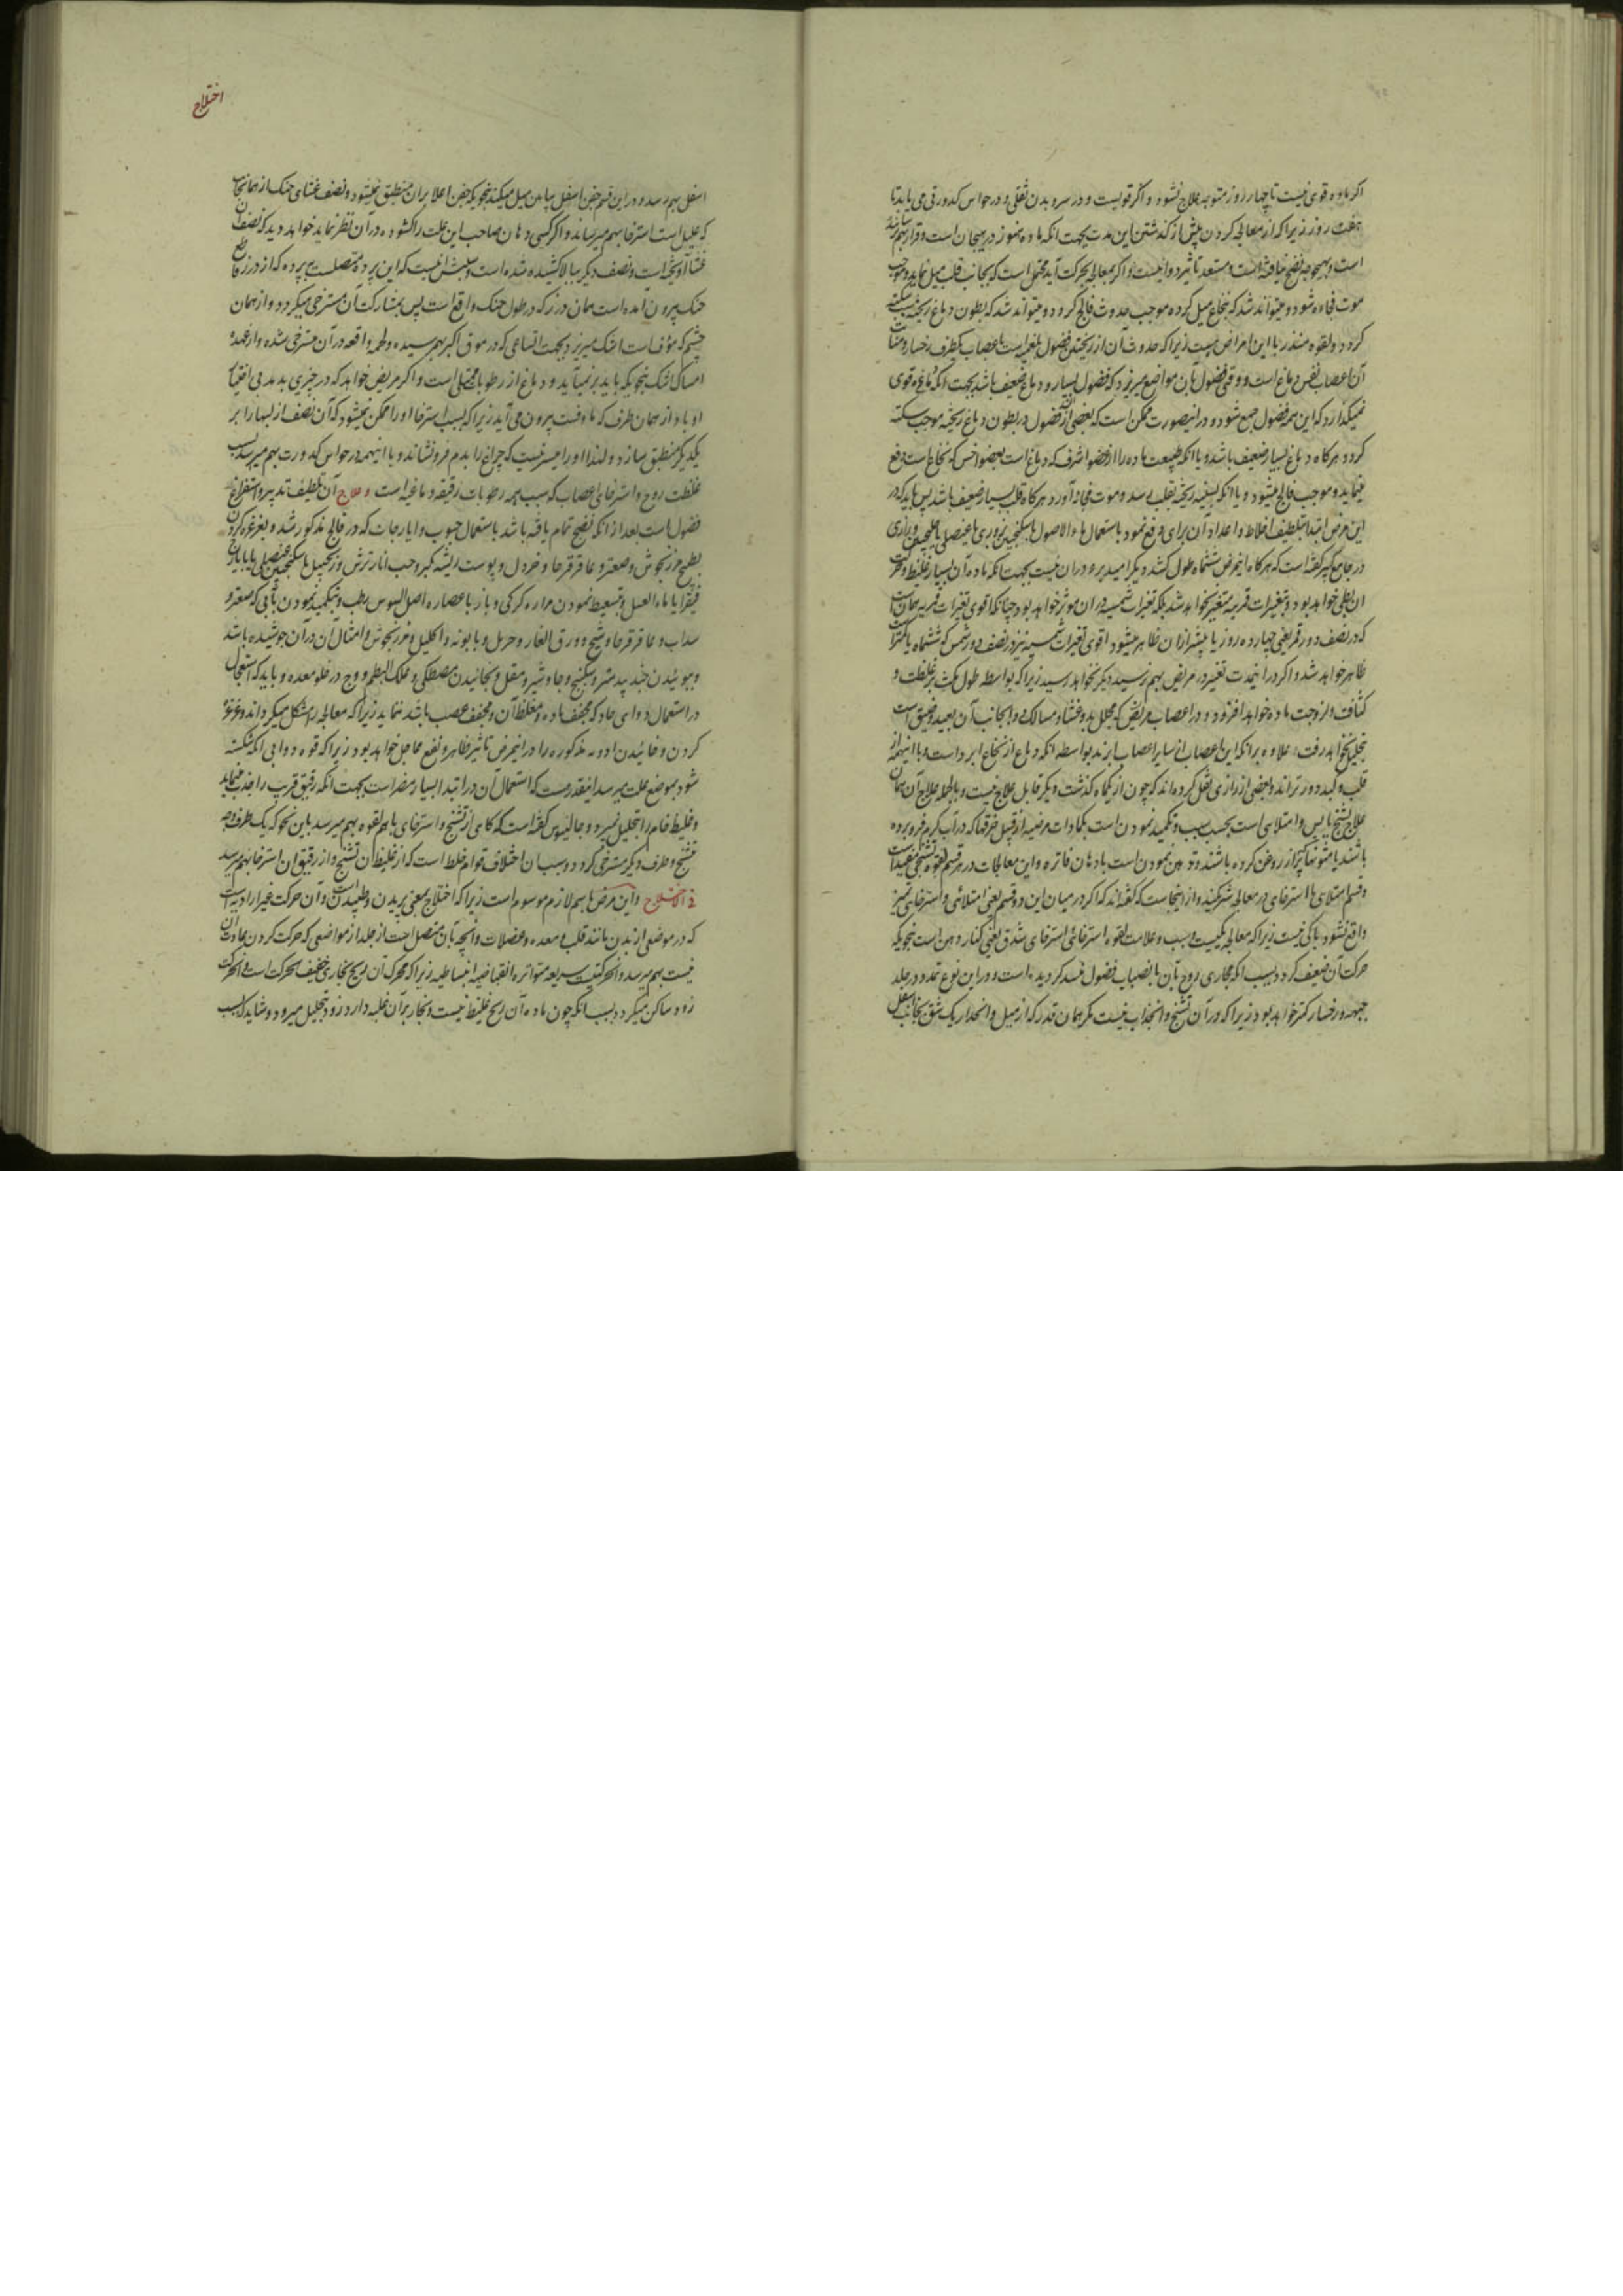 اگر ماده قوی نیست تا چهار روز متوجه علاج نشود و اگر قویست و در سر و بدن ثقلی و در حواس کدورتی می یابد تا
هفت روز زیرا که از معالجه کردن پیش از گذشتن این مدت بجهت انکه ماده هنوز در هیجان است و قرار بهم نرسانیده
است و بهیچوجه نضج نیافته است و مستعد تاثیر دوا نیست و اگر بمعالجه بحرکت آید محتمل است که بجانب قلب میل نماید و موجب
موت فجاه شود و میتواند شد که بنخاع میل کرده موجب حدوث فالج گردد و میتواند شد که ببطون دماغ ریخته سبب سکته
گردد و لقوه منذر با این امراض هست زیرا که حدوث آن از ریختن فضول بلغمیست باعصاب یکطرف رخسار و منبت
آن اعصاب نفس دماغ است و وقتی فضول بآن مواضع میریزد که فضول بسیار و دماغ ضعیف باشد بجهت انکه دماغ قوی
نمیگذارد که این همه فضول جمع شود و در اینصورت ممکن است که بعضی از فضول در بطون دماغ ریخته موجب سکته
گردد و هرگاه دماغ بسیار ضعیف باشد و یا انکه طبیعت ماده را از عضو اشرف که دماغ است بعضو اخس که نخاع است دفع
مینماید و موجب فالج میشود و یا انکه بقیه ریخته بقلب رسد و موت فجاه آورد هرگاه قلب بسیار ضعیف باشد پس باید که در
این مرض ابتدا بتلطیف اخلاط و اعداد ان برای دفع نمود باستعمال ماء الاصول با سکنجبین بزوری یا عنصلی یا گلنگبین و رازی
در جامع کبیر گفته است که هرگاه اینمرض ششماه طول کشد دیگر امید برء در ان نیست بجهت انکه ماده آن بسیار غلیظ و حرکت
ان بطی خواهد بود و بتغیرات قمریه متغیر نخواهد شد بلکه تغیرات شمسیه در ان موثر خواهد بود چنانکه اقوی تغیرات قمریه همان است
که در نصف دور قمر یعنی چهارده روز یا بیشتر از ان ظاهر میشود اقوی تغیرات شمسیه نیز در نصف دور شمس که ششماه یا کمتر است
ظاهر خواهد شد و اگر در اینمدت تغیر در مرض بهم نرسید دیگر نخواهد رسید زیرا که بواسطه طول مکث بر غلظت و
کثافت و لزوجت ماده خواهد افزود و در اعصاب مریض که محلل بدو غشاء و مسالک دوا بجانب آن بعید و ضیق است
بتحلیل نخواهد رفت علاوه بر انکه این اعصاب از سایر اعصاب ابرند بواسطه انکه دماغ از نخاع ابرد است و با اینهمه از
قلب و کبد دورترند و بعضی از رازی نقل کرده اند که چون از یکماه گذشت دیگر قابل علاج نیست و بالجمله علاج آن همان
علاج تشنج یابس و امتلایی است بحسب سبب و تکمید نمودن است بکمادات مرخیه از قبیل خرقها که در آب گرم فرو برده
باشند یا مثنونها که پر از روغن کرده باشند و تدهین نمودن است بادهان فاتره و این معالجات در هر قسم لقوه تشنجی مفید است
و قسم امتلایی با استرخایی در معالجه شریکند و از اینجاست که گفته اند که اگر در میان این دو قسم یعنی امتلائی و استرخایی تمیز
واقع نشود باکی نیست زیرا که معالجه یکیست و سبب و علامت لقوه استرخائی استرخای شدق یعنی کنار دهن است بنحویکه
حرکت آن ضعیف گردد بسبب انکه مجاری روح بآن بانصباب فضول منسد گردیده است و در این نوع تمدد در جلد
جبهه و رخسار کمتر خواهد بود زیرا که در آن تشنج و انجذاب نیست مگر همان قدر که از میل و انحدار یک شق بجانب اسفل
اختلاج
اسفل بهم رسد و در این قسم جفن اسفل بپایین میل میکند بنحویکه جفن اعلا بر ان منطبق نمیشود و نصف غشای حنک از همانجانب
که علیل است استرخا بهم میرساند و اگر کسی دهان صاحب این علت را گشوده در آن نظر نماید خواهد دید که نصف آن
غشا آویخته است و نصف دیگر ببالا کشیده شده است و سببش انیست که این پرده متصلست به پرده که از درز قاطع
حنک بیرون امده است همان درز که در طول حنک واقع است پس بمشارکت آن مسترخی میگردد و از همان
چشم که مؤف است اشک میریزد بجهت اتساعی که در موق اکبر بهم رسیده و لحمه واقعه در آن مسترخی شده و از عهده
امساک اشک بنحویکه باید بر نمیآید و دماغ از رطوبات ممتلی است و اگر مریض خواهد که در چیزی بدمد بی اختیار
او باد از همان طرف که ماوفست بیرون می آید زیرا که بسبب استرخا او را ممکن نمیشود که آن نصف از لبها را بر
یکدیگر منطبق سازد و لهذا او را میسر نیست که چراغ را بدم فرو نشاند و با اینهمه در حواس کدورت بهم میرسد بسبب
غلظت روح و استرخای اعصاب که سبب همه رطوبات رقیقه دماغیه است و علاج آن تلطیف تدبیر و استفراغ
فضول است بعد از انکه نضج تمام یافته باشد باستعمال حبوب و ایارجات که در فالج مذکور شد و بغرغره کردن
بطبیخ مرزنجوش و صعتر و عاقرقرحا و خردل و پوست ریشه کبر و حب انار ترش و زنجبیل با سکنجبین عنصلی یا بایارج
فیقرا یا ماء العسل و تسعیط نمودن مراره کرکی و باز با عصاره اصل السوس رطب و تکمید نمودن بآبی که صعتر و
سداب و عاقرقرحا و شیح و ورق الغار و حرمل و بابونه و اکلیل و مرزنجوش و امثال ان در آن جوشیده باشد
و ببوئیدن جندبیدستر و سکبینج و جاوشیر و مقل و بخائیدن مصطکی و علک البطم و وج در خلو معده و باید که استعجال
در استعمال دوای حاد که مجفف ماده و مغلظ آن و مجفف عصب باشد ننماید زیرا که معالجه را مشکل میگرداند و غرغره
کردن و خائیدن ادویه مذکوره را در اینمرض تاثیر ظاهر و نفع عاجل خواهد بود زیرا که قوه دوا بی انکه شکسته
شود بموضع علت میرسد اینقدر هست که استعمال آن در ابتدا بسیار مضر است بجهت انکه رقیق قریب را جذب مینماید
و غلیظ خام را تحلیل نمیبرد و جالینوس گفته است که گاهی از تشنج و استرخای با هم لقوه بهم میرسد باین نحو که یک طرف وجه
متشنج و طرف دیگر مسترخی گردد و سبب ان اختلاف قوام خلط است که از غلیظ ان تشنج و از رقیق ان استرخا بهم میرسد
فی الاختلاج و این مرض باسم لازم موسوم است زیرا که اختلاج بمعنی پریدن و طپیدن است و آن حرکت غیر ارادیه است
که در موضعی از بدن مانند قلب و معده و عضلات و انچه بآن متصل است از جلد از مواضعی که حرکت کردن بعادت ان
نیست بهم میرسد و انحرکتیست سریعه متواتره انقباضیه انبساطیه زیرا که محرک آن ریح بخاری خفیف الحرکت است و انحرکت
زود ساکن میگردد بسبب انکه چون ماده آن ریح غلیظ نیست و بخار بر آن غلبه دارد زود بتحلیل میرود و شاید که سبب